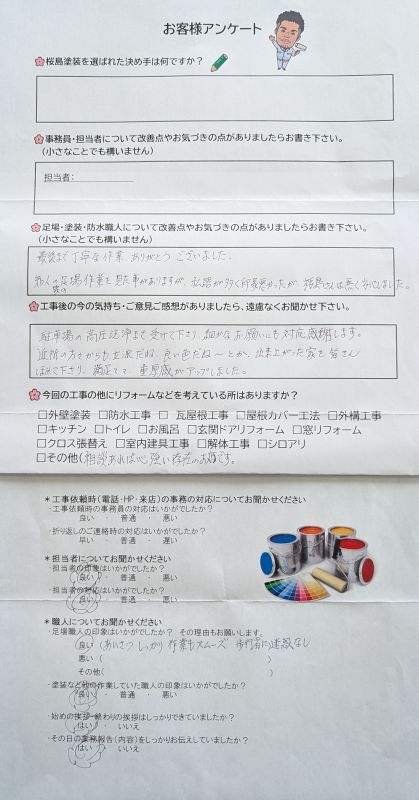 お客様アンケート
桜島塗装を選ばれた決め手は何ですか？
事務員・担当者について改善点やお気づきの点がありましたらお書き下さい。
(小さなことでも構いません)
担当者:
足場・塗装・防水職人について改善点やお気づきの点がありましたらお書き下さい。
(小さなことでも構いません)
最後まで丁寧な作業 ありがとうございました。
足場作業を見た事がありますが、私語が多く印象悪かったが 桜島さんは無く安心しました。
工事後の今の気持ち・ご意見ご感想がありましたら、遠慮なくお聞かせ下さい。
駐車場の高圧洗浄まで受けて下さり 細かなお願いにも対応感謝します。
近所の方々からも 立派だね、良い色だね～とか、出来上がった家を皆さん
ほめて下さり、満足です、重厚感がアップしました。
今回の工事の他にリフォームなどを考えている所はありますか？
□外壁塗装 □防水工事 □ 瓦屋根工事 □屋根カバー工法 □外構工事
□キッチン □トイレ □お風呂 □玄関ドアリフォーム □窓リフォーム
□クロス張替え □室内建具工事 □解体工事 □シロアリ
□その他(相談あれば心強い存在のお店です。
＊工事依頼時(電話・HP・来店)の事務の対応についてお聞かせください
・工事依頼時の事務員の対応はいかがでしたか？
良い ・ 普通 ・ 悪い
・折り返しのご連絡時の対応はいかがでしたか？
早い ・ 普通 ・ 悪い
＊担当者についてお聞かせください
・担当者の印象はいかがでしたか？
良い ・ 普通 ・ 悪い
・担当者の対応はいかがでしたか？
良い ・ 普通 ・ 悪い
＊職人についてお聞かせください
・足場職人の印象はいかがでしたか？ その理由もお願いします。
良い (あいさつ しっかり 作業もスムーズ 歩行者に迷惑なし
悪い ( )
その他( )
・塗装など他の作業していた職人の印象はいかがでしたか？
良い ・ 普通 ・ 悪い
・始めの挨拶・終わりの挨拶はしっかりできていましたか？
はい ・ いいえ
・その日の業務報告(内容)をしっかりお伝えしていましたか？
はい ・ いいえ